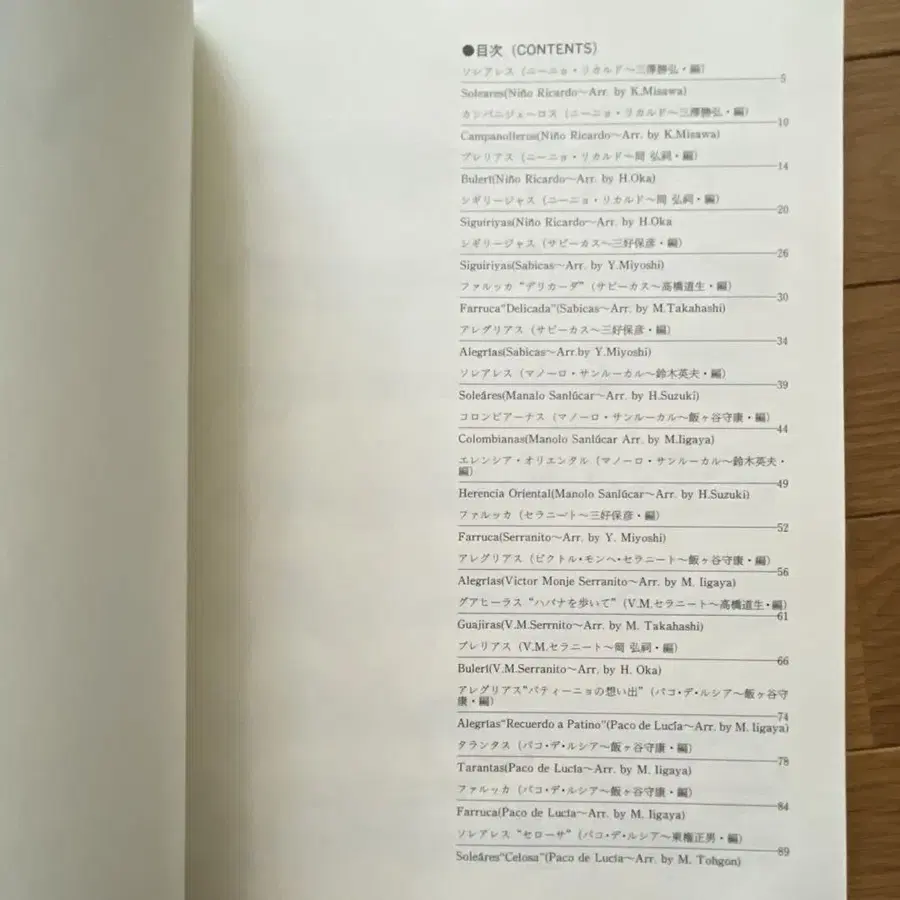 ●目次 (CONTENTS)
ソレアレス (ニーニョ・リカルド～三澤勝弘・編)
5
Soleares(Niño Ricardo～Arr. by K.Misawa)
カンパニジェーロス (ニーニョ・リカルド～三澤勝弘・編)
10
Campanolleros(Niño Ricardo～Arr. by K.Misawa)
ブレリアス (ニーニョ・リカルド～岡 弘祠・編)
14
Bulerī(Niño Ricardo～Arr. by H.Oka)
シギリージャス (ニーニョ・リカルド～岡 弘祠・編)
20
Siguiriyas(Niño Ricardo～Arr. by H.Oka
シギリージャス (サビーカス～三好保彦・編)
26
Siguiriyas(Sabicas～Arr. by Y.Miyoshi)
ファルッカ“デリカーダ” (サビーカス～高橋道生・編)
30
Farruca“Delicada”(Sabicas～Arr. by M.Takahashi)
アレグリアス (サビーカス～三好保彦・編)
34
Alegrīas(Sabicas～Arr.by Y.Miyoshi)
ソレアレス (マノーロ・サンルーカル～鈴木英夫・編)
39
Soleáres(Manalo Sanlúcar～Arr. by H.Suzuki)
コロンビアーナス (マノーロ・サンルーカル～飯ヶ谷守康・編)
44
Colombianas(Manolo Sanlúcar Arr. by M.Iigaya)
エレンシア・オリエンタル (マノーロ・サンルーカル～鈴木英夫・
編)
49
Herencia Oriental(Manolo Sanlúcar～Arr. by H.Suzuki)
ファルッカ (セラニート～三好保彦・編)
52
Farruca(Serranito～Arr. by Y. Miyoshi)
アレグリアス (ビクトル・モンヘ・セラニート～飯ヶ谷守康・編)
56
Alegrías(Víctor Monje Serranito～Arr. by M. Iigaya)
グアヒーラス “ハバナを歩いて” (V.M.セラニート～高橋道生・編)
61
Guajiras(V.M.Serrnito～Arr. by M. Takahashi)
ブレリアス (V.M.セラニート～岡 弘祠・編)
66
Bulerī(V.M.Serranito～Arr. by H. Oka)
アレグリアス“パティーニョの想い出” (パコ・デ・ルシア～飯ヶ谷守
康・編)
74
Alegrías“Recuerdo a Patino”(Paco de Lucía～Arr. by M. Iigaya)
タランタス (パコ・デ・ルシア～飯ヶ谷守康・編)
78
Tarantas(Paco de Lucía～Arr. by M. Iigaya)
ファルッカ (パコ・デ・ルシア～飯ヶ谷守康・編)
84
Farruca(Paco de Lucía～Arr. by M. Iigaya)
ソレアレス “セローサ” (パコ・デ・ルシア～東権正男・編)
89
Soleáres“Celosa”(Paco de Lucía～Arr. by M. Tohgon)